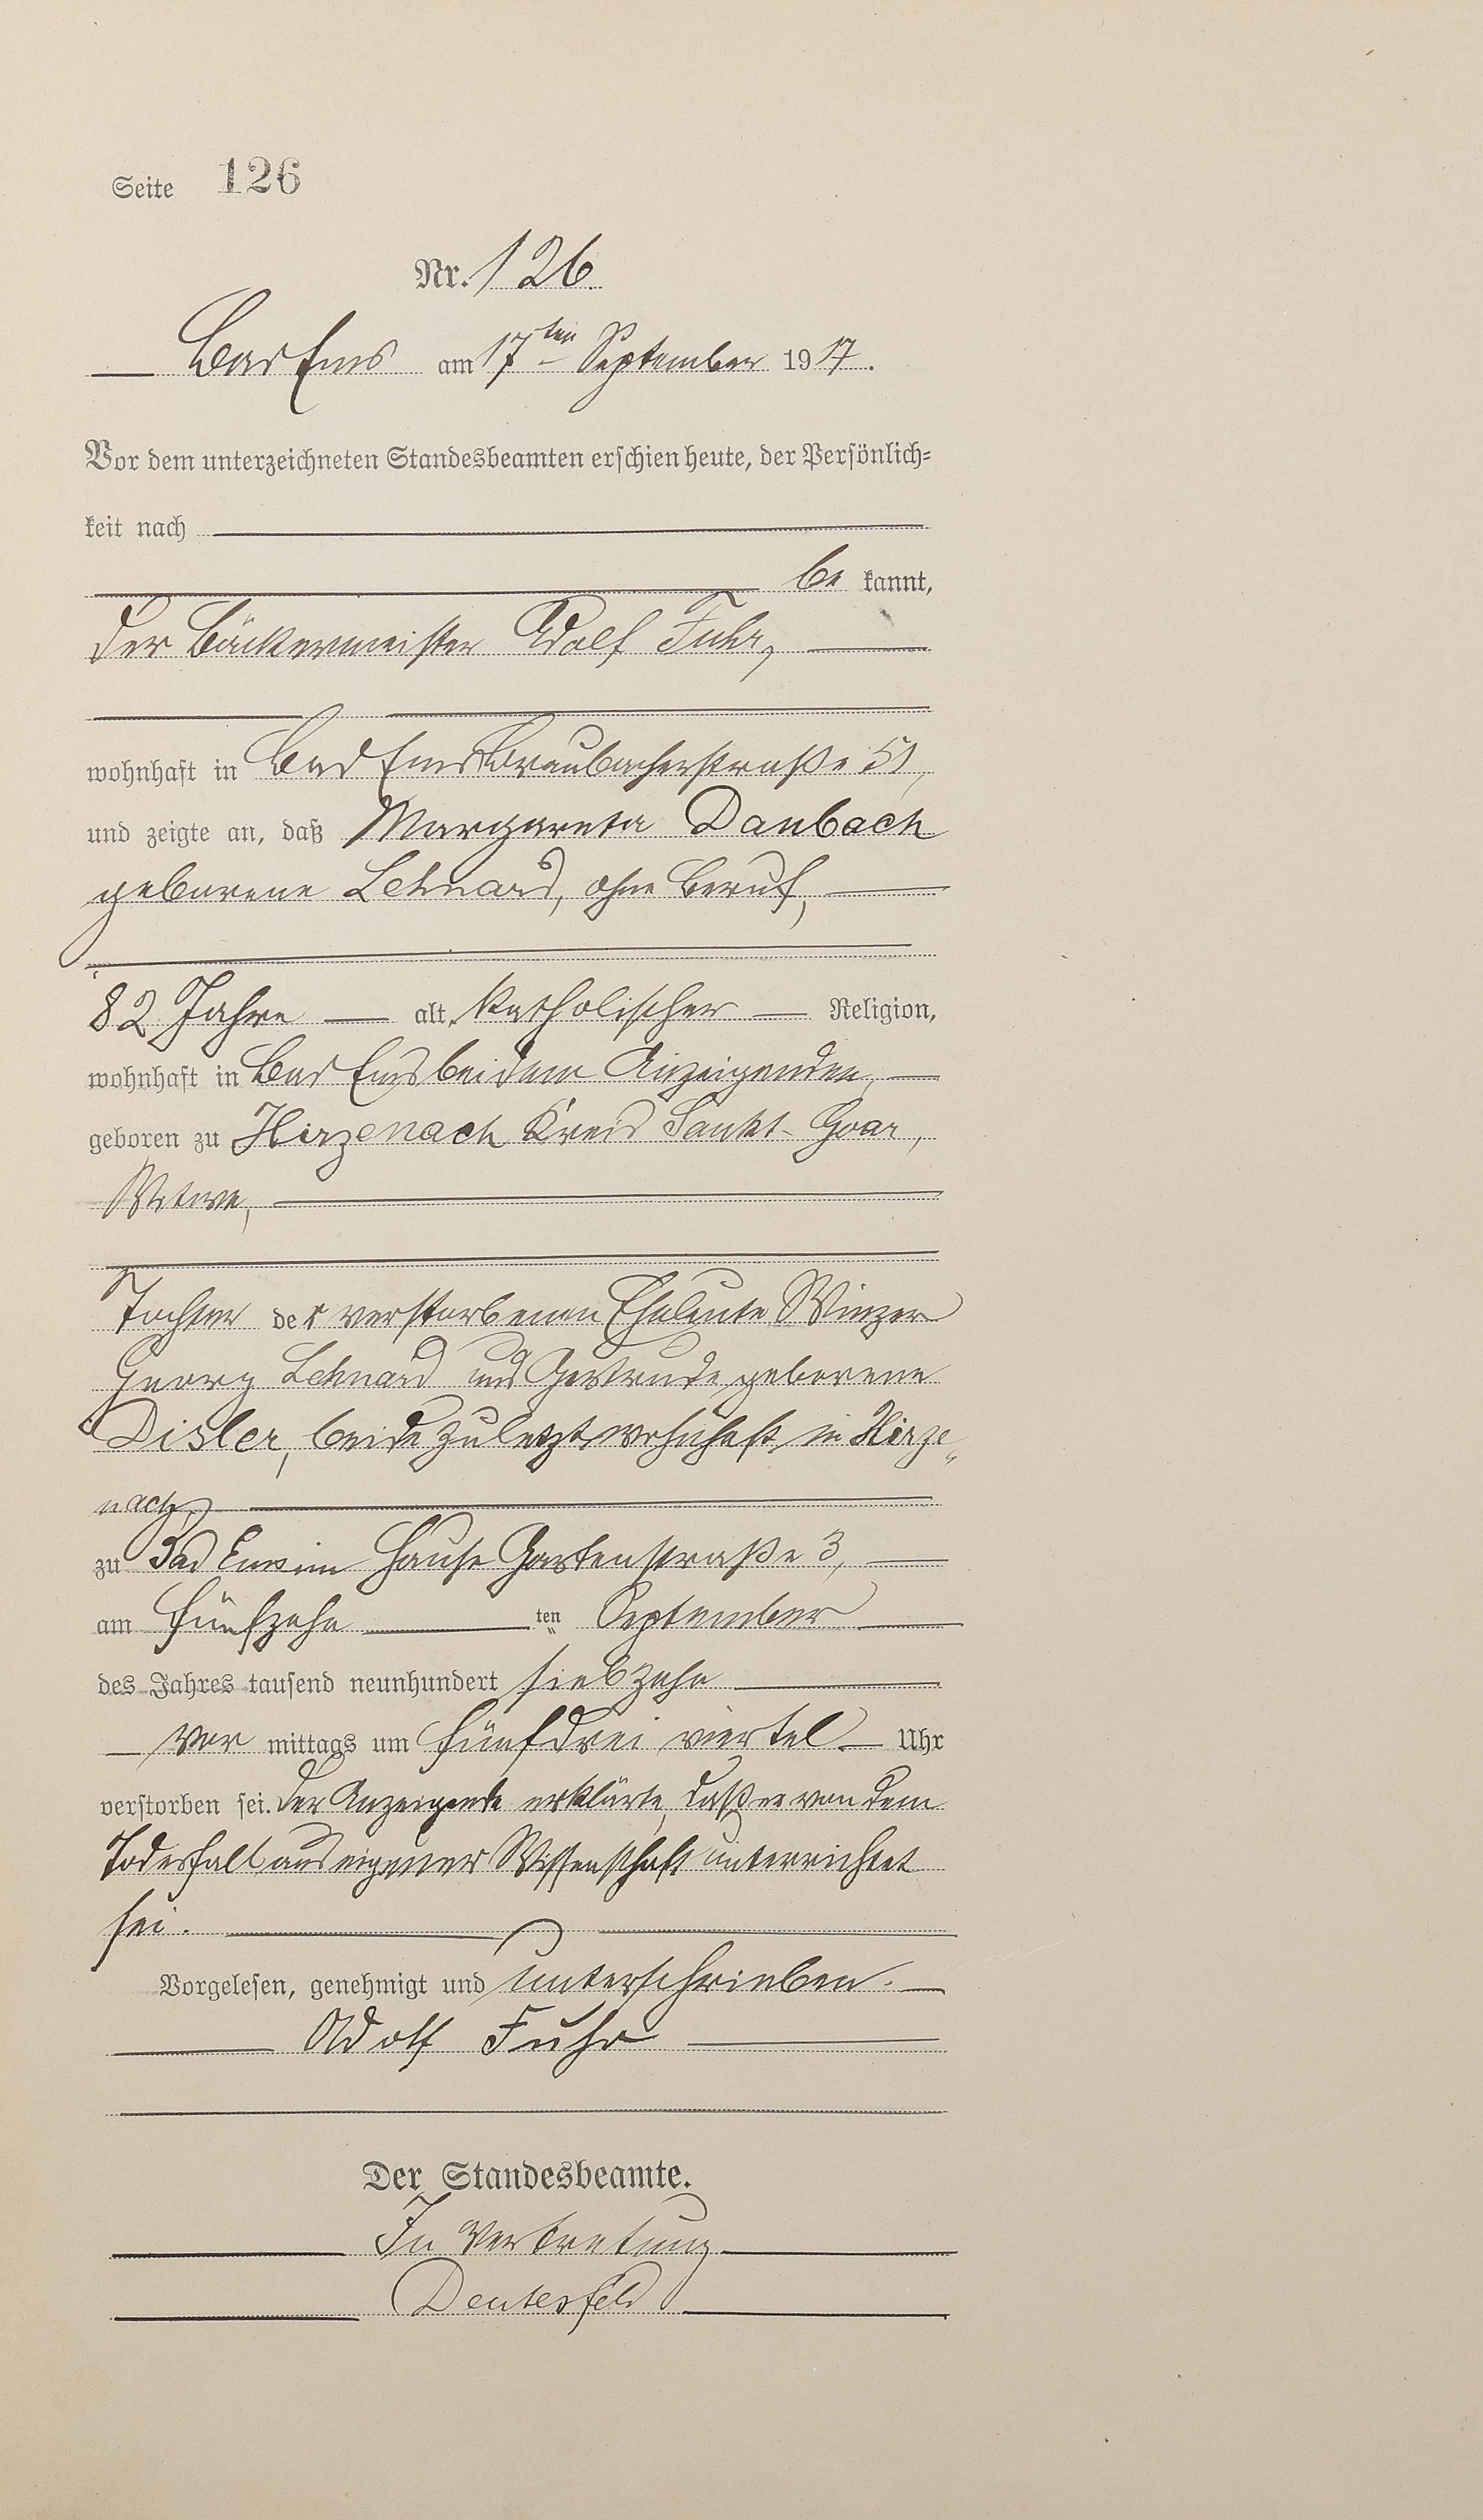 Seite 126
Nr. 126.
Bad Ems am 17ten September 1917.
Vor dem unterzeichneten Standesbeamten erschien heute, der Persönlich=
keit nach
be kannt,
der Bäckermeister Adolf Fuhr,
wohnhaft in Bad Ems Braubacherstraße 51,
und zeigte an, daß Margareta Danbach
geborene Lehnard, ohne Beruf,
82 Jahre alt, katholischer Religion,
wohnhaft in Bad Ems bei dem Anzeigenden,
geboren zu Hirzenach Kreis Sankt-Goar,
Witwe,
Tochter der verstorbenen Eheleute Winzer
Georg Lehnard und Gertrude geborene
Disler, beide zuletzt wohnhaft in Hirze„
nach,
zu Bad Ems im Hause Gartenstraße 3,
am fünfzehn ten September
des Jahres tausend neunhundert siebzehn
vor mittags um fünf drei viertel Uhr
verstorben sei. Der Anzeigende erklärte, daß er von dem
Todesfall aus eigener Wissenschaft unterrichtet
sei.
Vorgelesen, genehmigt und unterschrieben.
Adolf Fuhr
Der Standesbeamte.
In Vertretung
Deutesfeld